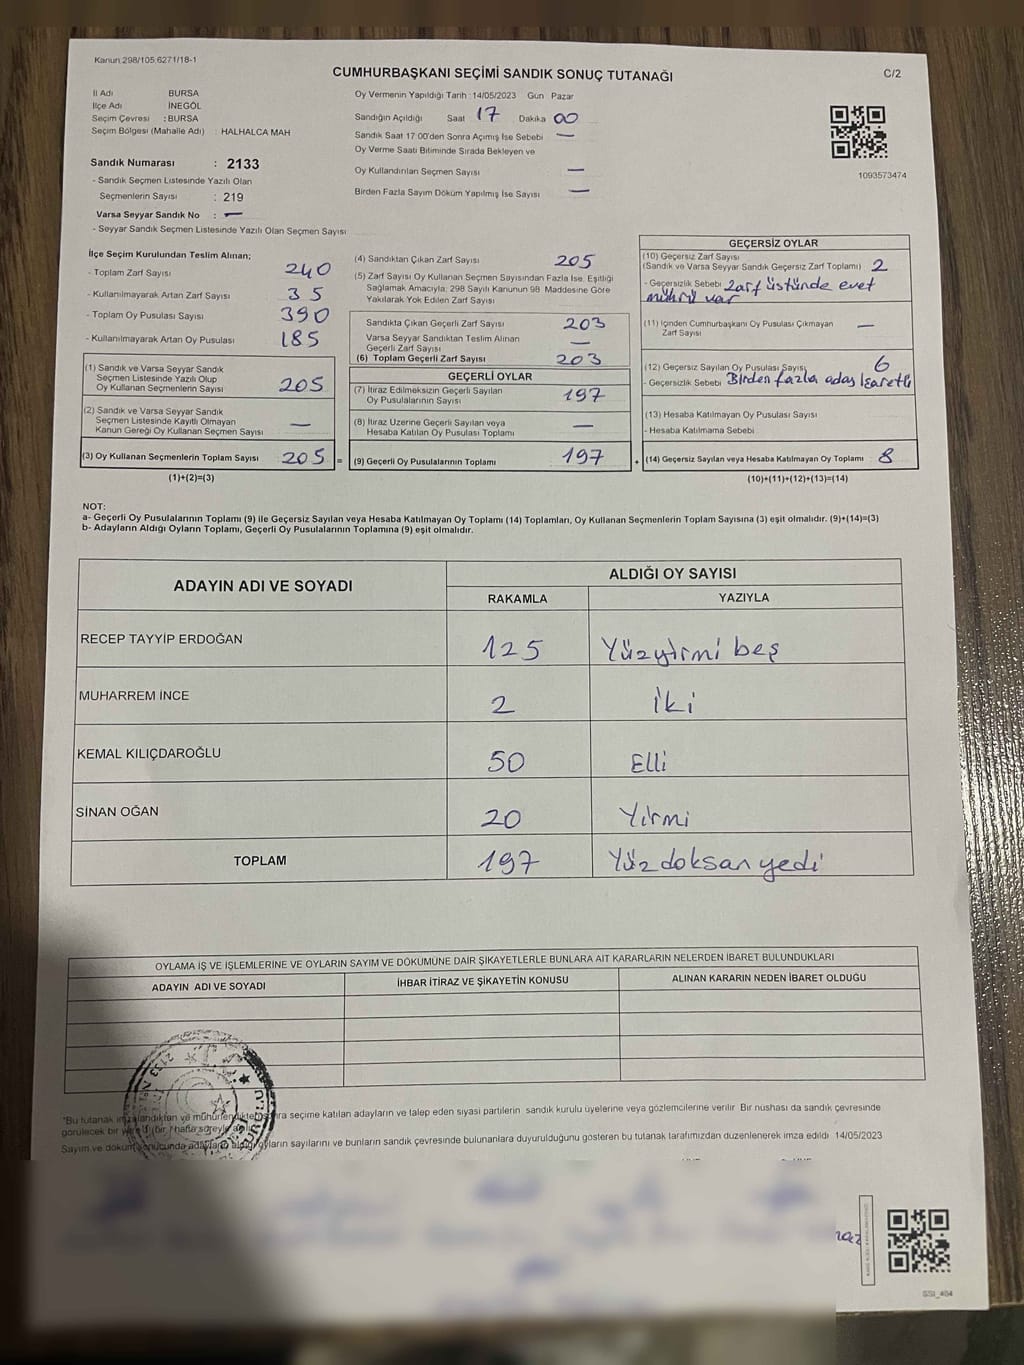 Kanun 298/105 6271/18-1
CUMHURBAŞKANI SEÇİMİ SANDIK SONUÇ TUTANAĞI
C/2
İl Adı BURSA
İlçe Adı İNEGÖL
Seçim Çevresi : BURSA
Seçim Bölgesi (Mahalle Adı) : HALHALCA MAH
Sandık Numarası : 2133
- Sandık Seçmen Listesinde Yazılı Olan
Seçmenlerin Sayısı : 219
Varsa Seyyar Sandık No : —
- Seyyar Sandık Seçmen Listesinde Yazılı Olan Seçmen Sayısı
Oy Vermenin Yapıldığı Tarih :14/05/2023 Gün Pazar
Sandığın Açıldığı Saat 17 Dakika 00
Sandık Saat 17:00'den Sonra Açımış İse Sebebi —
Oy Verme Saati Bitiminde Sırada Bekleyen ve
Oy Kullandırılan Seçmen Sayısı —
Birden Fazla Sayım Döküm Yapılmış İse Sayısı —
1093573474
İlçe Seçim Kurulundan Teslim Alınan;
- Toplam Zarf Sayısı 240
- Kullanılmayarak Artan Zarf Sayısı 35
- Toplam Oy Pusulası Sayısı 390
- Kullanılmayarak Artan Oy Pusulası 185
(1) Sandık ve Varsa Seyyar Sandık
Seçmen Listesinde Yazılı Olup
Oy Kullanan Seçmenlerin Sayısı 205
(2) Sandık ve Varsa Seyyar Sandık
Seçmen Listesinde Kayıtlı Olmayan
Kanun Gereği Oy Kullanan Seçmen Sayısı —
(3) Oy Kullanan Seçmenlerin Toplam Sayısı 205 =
(1)+(2)=(3)
(4) Sandıktan Çıkan Zarf Sayısı 205
(5) Zarf Sayısı Oy Kullanan Seçmen Sayısından Fazla İse, Eşitliği
Sağlamak Amacıyla; 298 Sayılı Kanunun 98. Maddesine Göre
Yakılarak Yok Edilen Zarf Sayısı
Sandıkta Çıkan Geçerli Zarf Sayısı 203
Varsa Seyyar Sandıktan Teslim Alınan
Geçerli Zarf Sayısı —
(6) Toplam Geçerli Zarf Sayısı 203
GEÇERLİ OYLAR
(7) İtiraz Edilmeksizin Geçerli Sayılan
Oy Pusulalarının Sayısı 197
(8) İtiraz Üzerine Geçerli Sayılan veya
Hesaba Katılan Oy Pusulası Toplamı —
(9) Geçerli Oy Pusulalarının Toplamı 197 +
GEÇERSİZ OYLAR
(10) Geçersiz Zarf Sayısı
(Sandık ve Varsa Seyyar Sandık Geçersiz Zarf Toplamı) 2
- Geçersizlik Sebebi Zarf üstünde evet
mührü var
(11) İçinden Cumhurbaşkanı Oy Pusulası Çıkmayan
Zarf Sayısı —
(12) Geçersiz Sayılan Oy Pusulası Sayısı 6
- Geçersizlik Sebebi Birden fazla aday işaretli
(13) Hesaba Katılmayan Oy Pusulası Sayısı
- Hesaba Katılmama Sebebi
(14) Geçersiz Sayılan veya Hesaba Katılmayan Oy Toplamı 8
(10)+(11)+(12)+(13)=(14)
NOT:
a- Geçerli Oy Pusulalarının Toplamı (9) ile Geçersiz Sayılan veya Hesaba Katılmayan Oy Toplamı (14) Toplamları, Oy Kullanan Seçmenlerin Toplam Sayısına (3) eşit olmalıdır. (9)+(14)=(3)
b- Adayların Aldığı Oyların Toplamı, Geçerli Oy Pusulalarının Toplamına (9) eşit olmalıdır.
ADAYIN ADI VE SOYADI
ALDIĞI OY SAYISI
RAKAMLA YAZIYLA
RECEP TAYYİP ERDOĞAN 125 Yüzyirmi beş
MUHARREM İNCE 2 İki
KEMAL KILIÇDAROĞLU 50 Elli
SİNAN OĞAN 20 Yirmi
TOPLAM 197 Yüz doksan yedi
OYLAMA İŞ VE İŞLEMLERİNE VE OYLARIN SAYIM VE DÖKÜMÜNE DAİR ŞİKAYETLERLE BUNLARA AİT KARARLARIN NELERDEN İBARET BULUNDUKLARI
ADAYIN ADI VE SOYADI İHBAR İTİRAZ VE ŞİKAYETİN KONUSU ALINAN KARARIN NEDEN İBARET OLDUĞU
2133
*Bu tutanak imzalandıktan ve mühürlendikten sonra seçime katılan adayların ve talep eden siyasi partilerin sandık kurulu üyelerine veya gözlemcilerine verilir Bir nüshası da sandık çevresinde
görülecek bir yere (bir) hafta süreyle asılır
Sayım ve döküm sonucunda adayların aldığı oyların sayılarını ve bunların sandık çevresinde bulunanlara duyurulduğunu gösteren bu tutanak tarafımızdan düzenlenerek imza edildi 14/05/2023
SSI_404